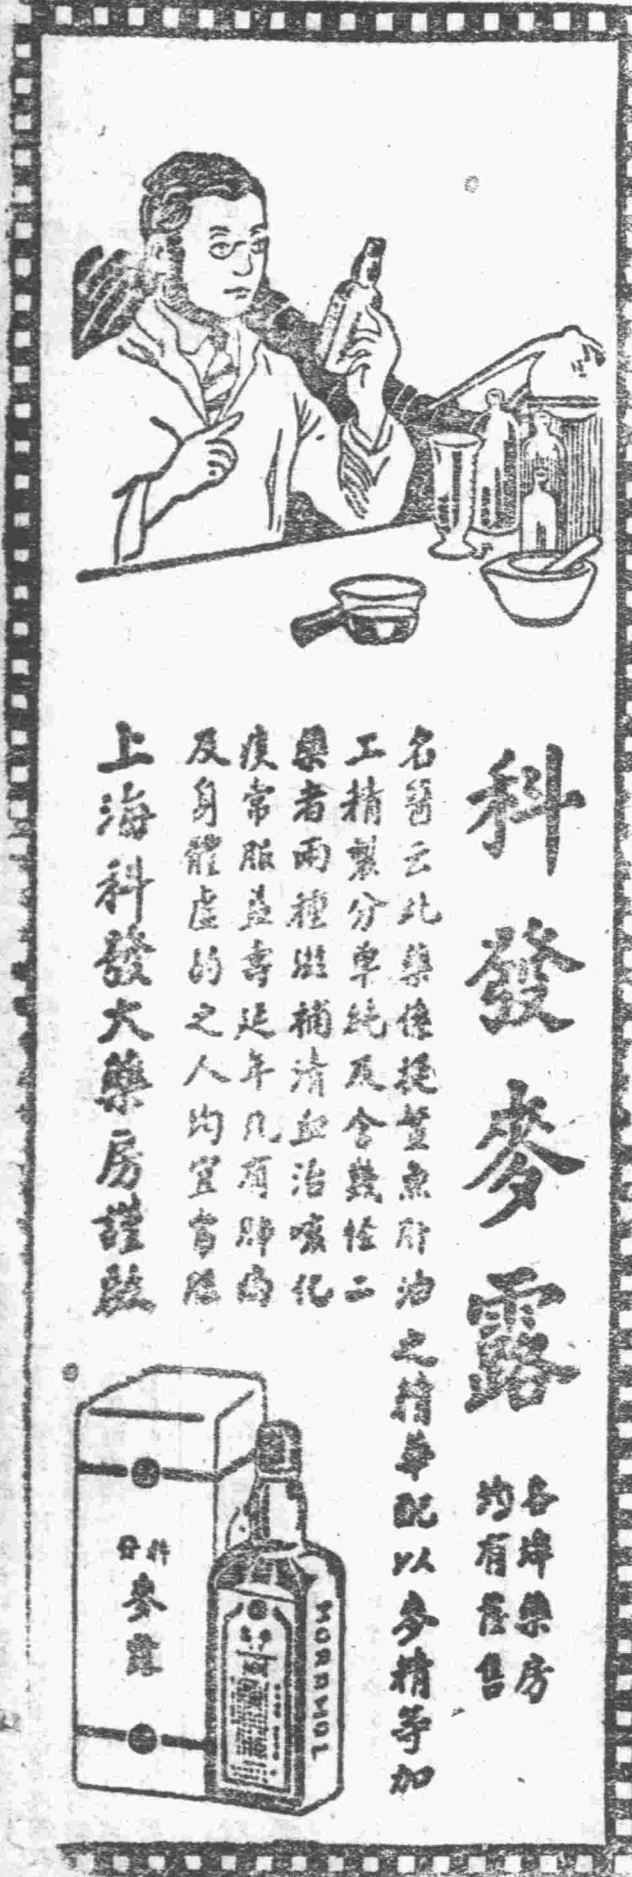 科發麥露
各埠藥房
均有經售
名醫云此藥係提鰵魚肝油之精華配以麥精等加
工精製分單純及含幾怪二
藥者兩種滋補清血治咳化
痰常服益壽延年凡有肺病
及身體虛弱之人均宜常服
上海科發大藥房謹啟
科發
麥露
MORRHOL